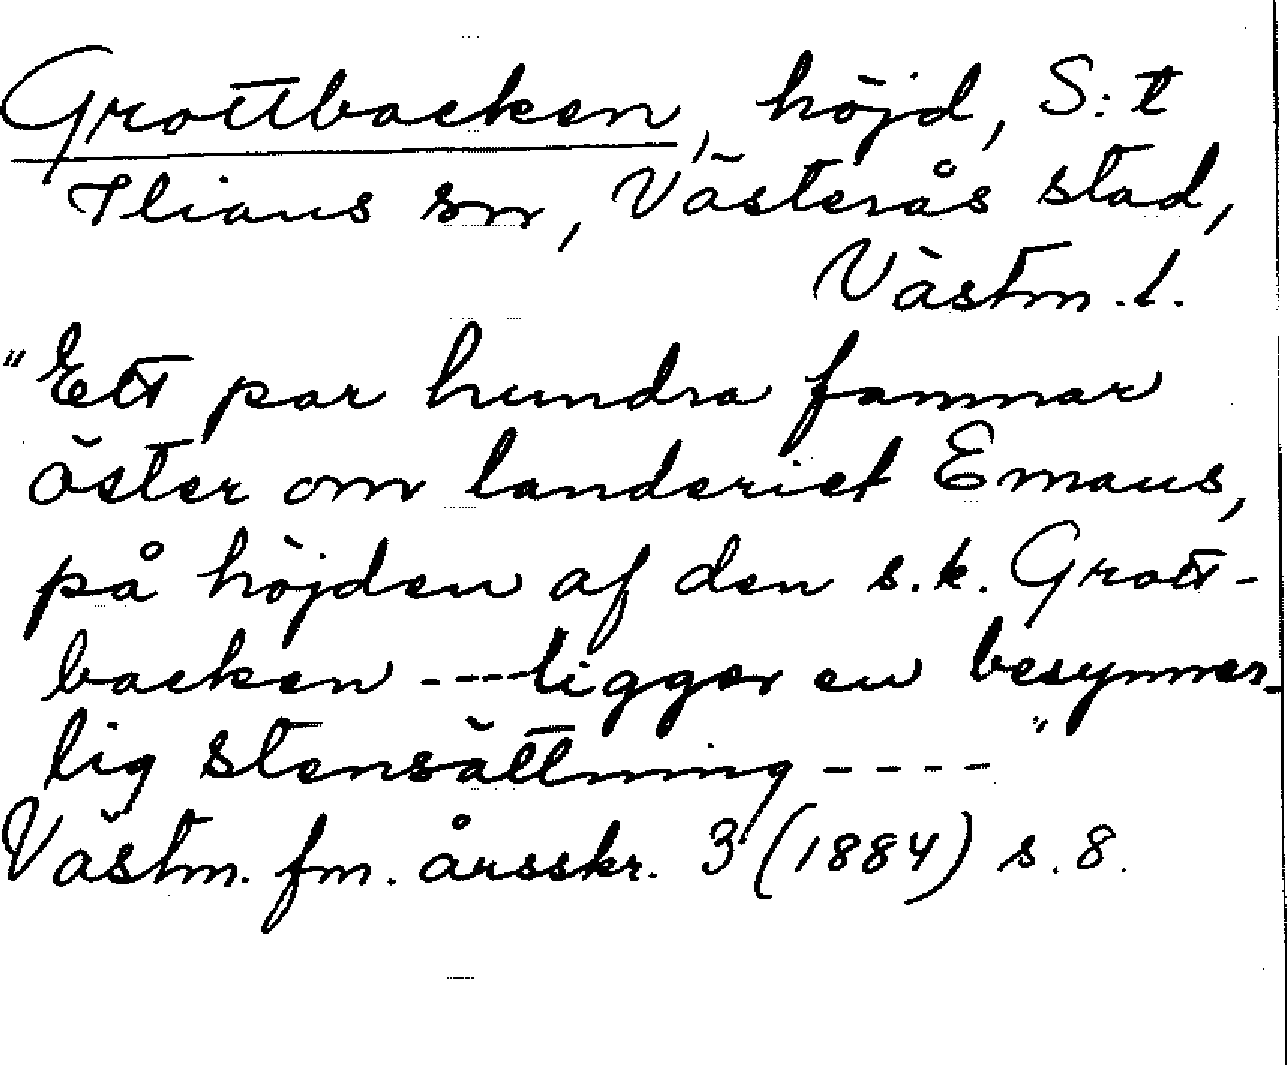 Grottbacken, höjd, S:t
Ilians sn, Västerås stad,
Västm. l.
"Ett par hundra famnar
öster om landeriet Emaus,
på höjden af den s.k. Grott-
backen ---ligger en besynner-
lig stensättning ----"
Västm. fm. årsskr. 3 (1884) s. 8.